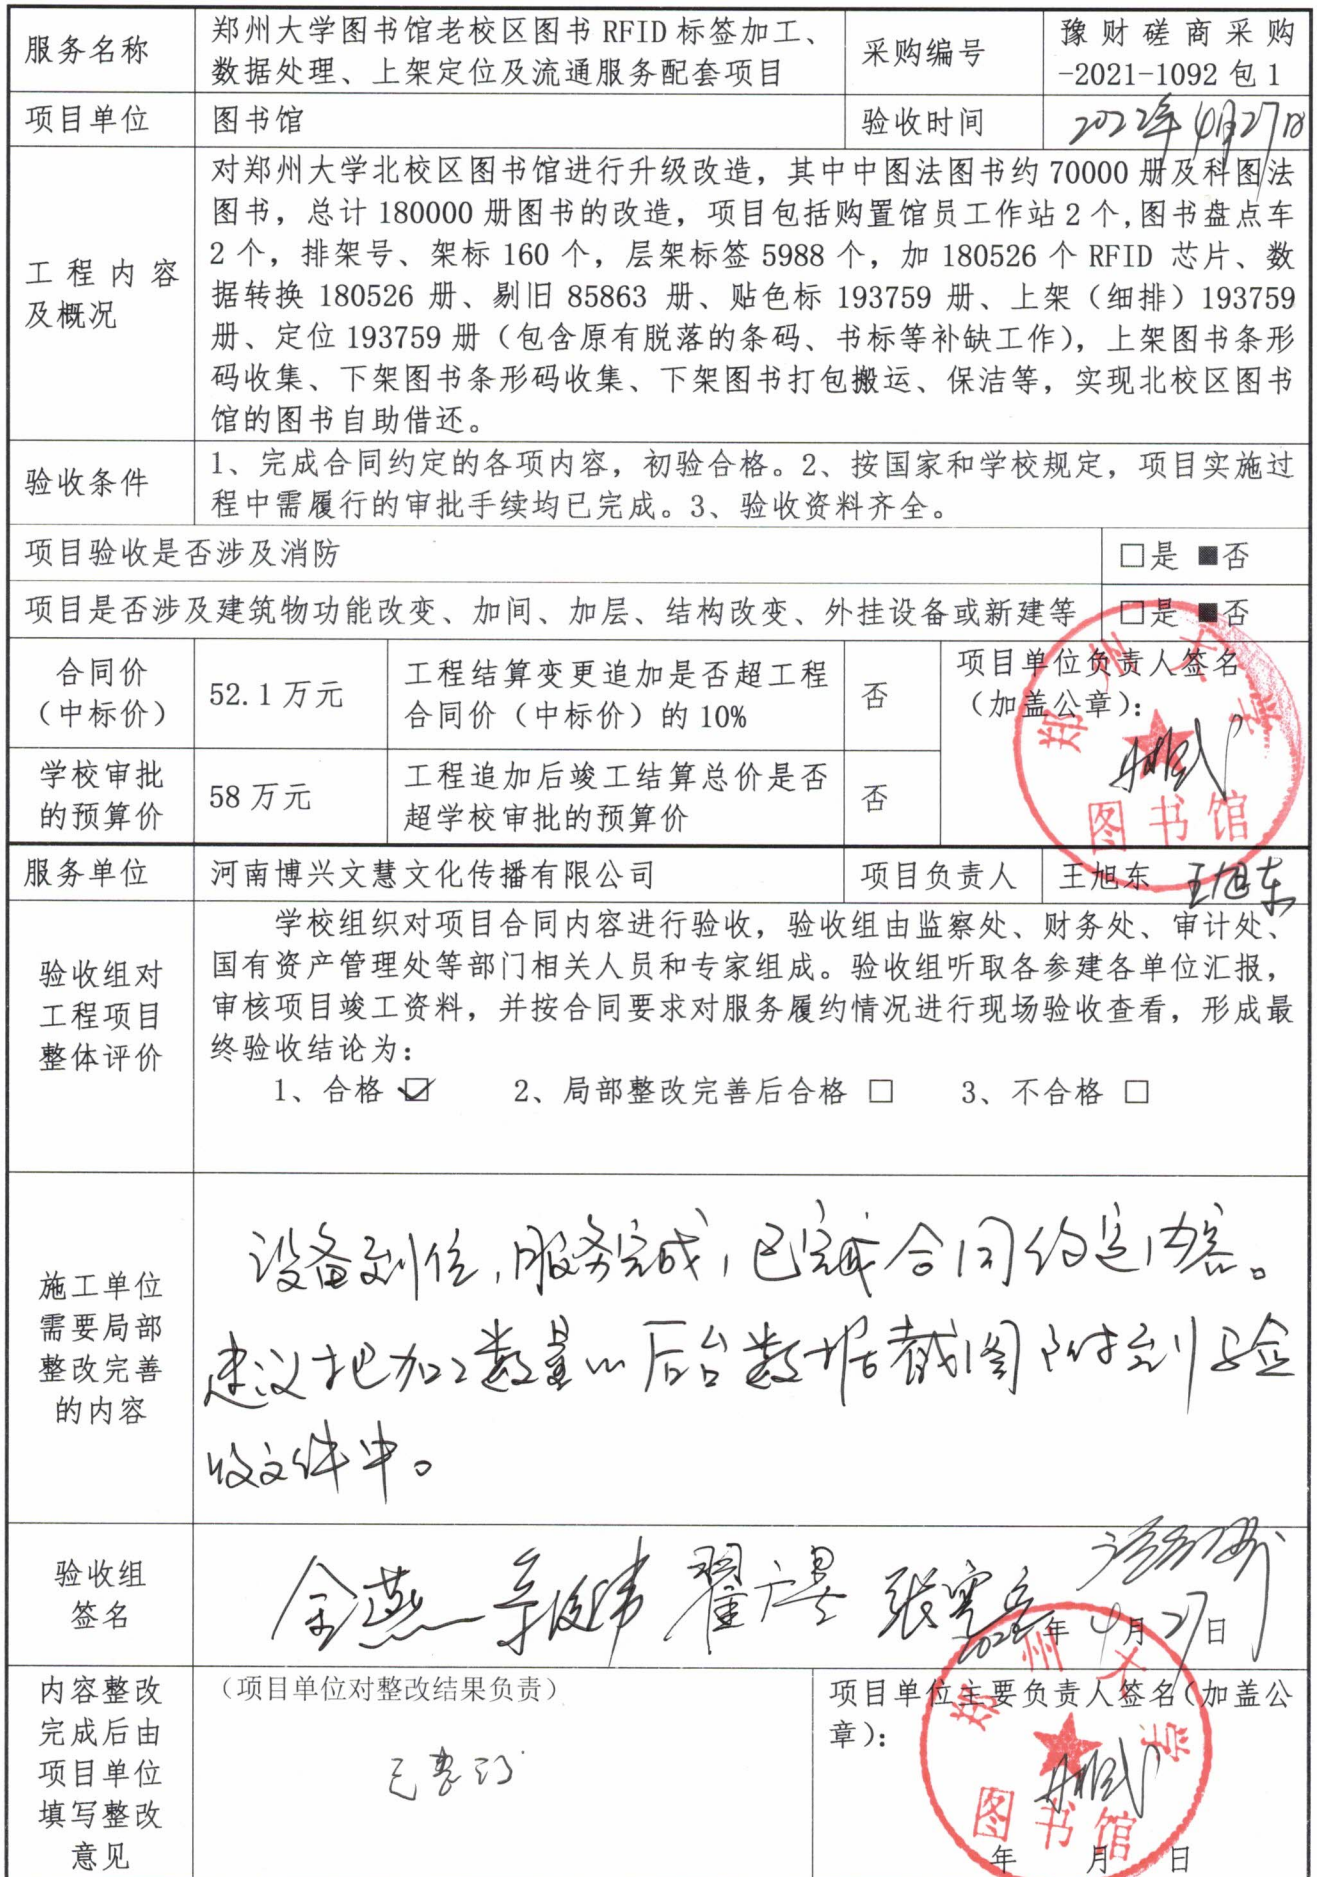 服务名称
郑州大学图书馆老校区图书 RFID 标签加工、
数据处理、上架定位及流通服务配套项目
采购编号
豫财磋商采购
-2021-1092 包 1
项目单位
图书馆
验收时间
2022年4月27日
工程内容
及概况
对郑州大学北校区图书馆进行升级改造，其中中图法图书约 70000 册及科图法
图书，总计 180000 册图书的改造，项目包括购置馆员工作站 2 个,图书盘点车
2 个，排架号、架标 160 个，层架标签 5988 个，加 180526 个 RFID 芯片、数
据转换 180526 册、剔旧 85863 册、贴色标 193759 册、上架（细排）193759
册、定位 193759 册（包含原有脱落的条码、书标等补缺工作），上架图书条形
码收集、下架图书条形码收集、下架图书打包搬运、保洁等，实现北校区图书
馆的图书自助借还。
验收条件
1、完成合同约定的各项内容，初验合格。2、按国家和学校规定，项目实施过
程中需履行的审批手续均已完成。3、验收资料齐全。
项目验收是否涉及消防
□是 ■否
项目是否涉及建筑物功能改变、加间、加层、结构改变、外挂设备或新建等
□是 ■否
合同价
（中标价）
52.1 万元
工程结算变更追加是否超工程
合同价（中标价）的 10%
否
项目单位负责人签名
（加盖公章）：
郑州大学
图书馆
学校审批
的预算价
58 万元
工程追加后竣工结算总价是否
超学校审批的预算价
否
服务单位
河南博兴文慧文化传播有限公司
项目负责人
王旭东 王旭东
验收组对
工程项目
整体评价
学校组织对项目合同内容进行验收，验收组由监察处、财务处、审计处、
国有资产管理处等部门相关人员和专家组成。验收组听取各参建各单位汇报，
审核项目竣工资料，并按合同要求对服务履约情况进行现场验收查看，形成最
终验收结论为：
1、合格 ☑ 2、局部整改完善后合格 □ 3、不合格 □
施工单位
需要局部
整改完善
的内容
设备到位，服务完成，已完成合同约定内容。
建议把加工数量以后台数据截图附到验
收文件中。
验收组
签名
2022年4月27日
内容整改
完成后由
项目单位
填写整改
意见
（项目单位对整改结果负责）
已整改
项目单位主要负责人签名（加盖公
章）：
郑州大学
图书馆
年 月 日